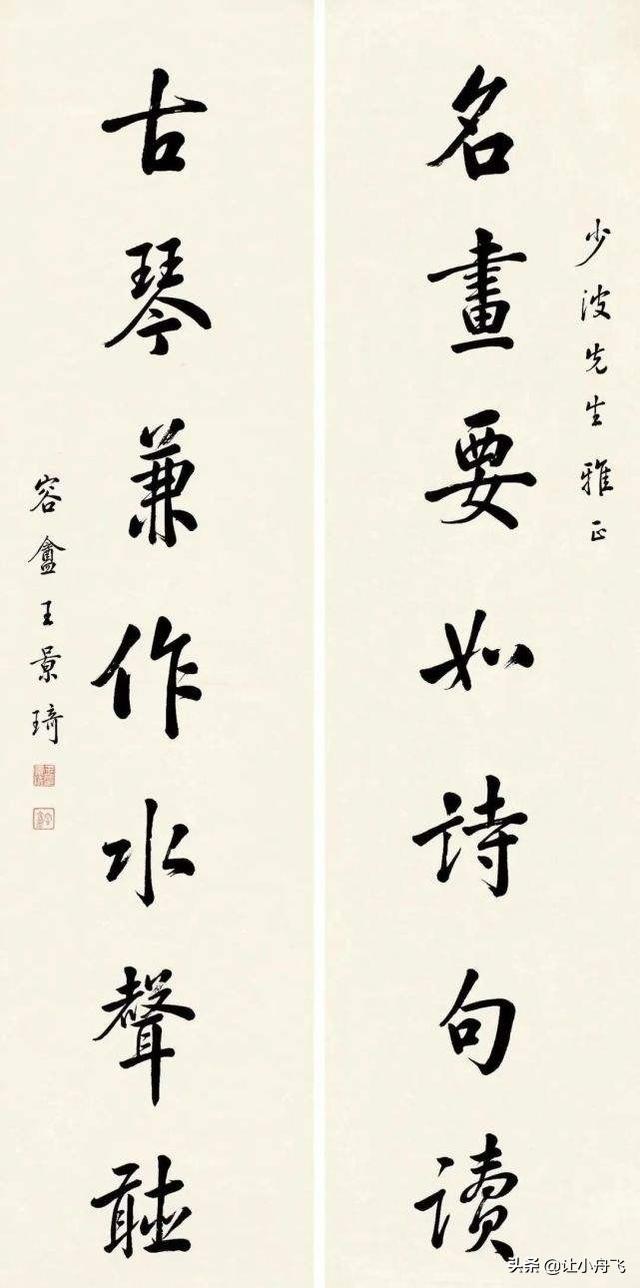 少波先生雅正
名畫要如詩句讀
古琴兼作水聲聽
容盦王景琦
头条 @让小舟飞